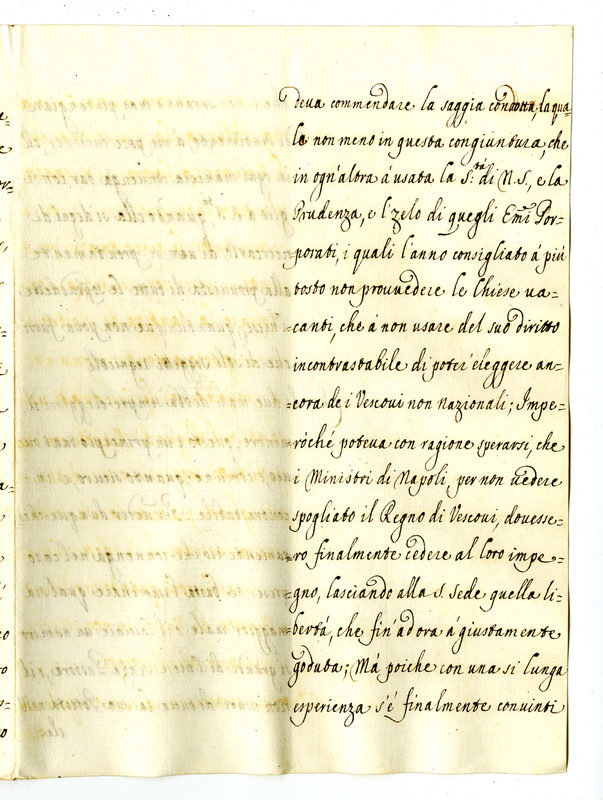 deva commendare la saggia condotta, la qua-
le non meno in questa congiuntura, che
in ogn'altra à usata la S.tà di N.S., e la
Prudenza, e l'zelo di quegli Emi Por-
porati, i quali l'anno consigliato á più
tosto non provvedere le Chiese va-
canti, che á non usare del suo diritto
incontrastabile di poter'eleggere an-
cora de i Vescovi non nazionali; Impe-
róché poteva con ragione sperarsi, che
i Ministri di Napoli, per non vedere
spogliato il Regno di Vescovi, dovesse-
ro finalmente cedere al loro impe-
gno, lasciando alla S. Sede quella li-
bertá, che fin'ad ora á giustamente
goduta; Má poiche con una si lunga
esperienza s'é finalmente convinti